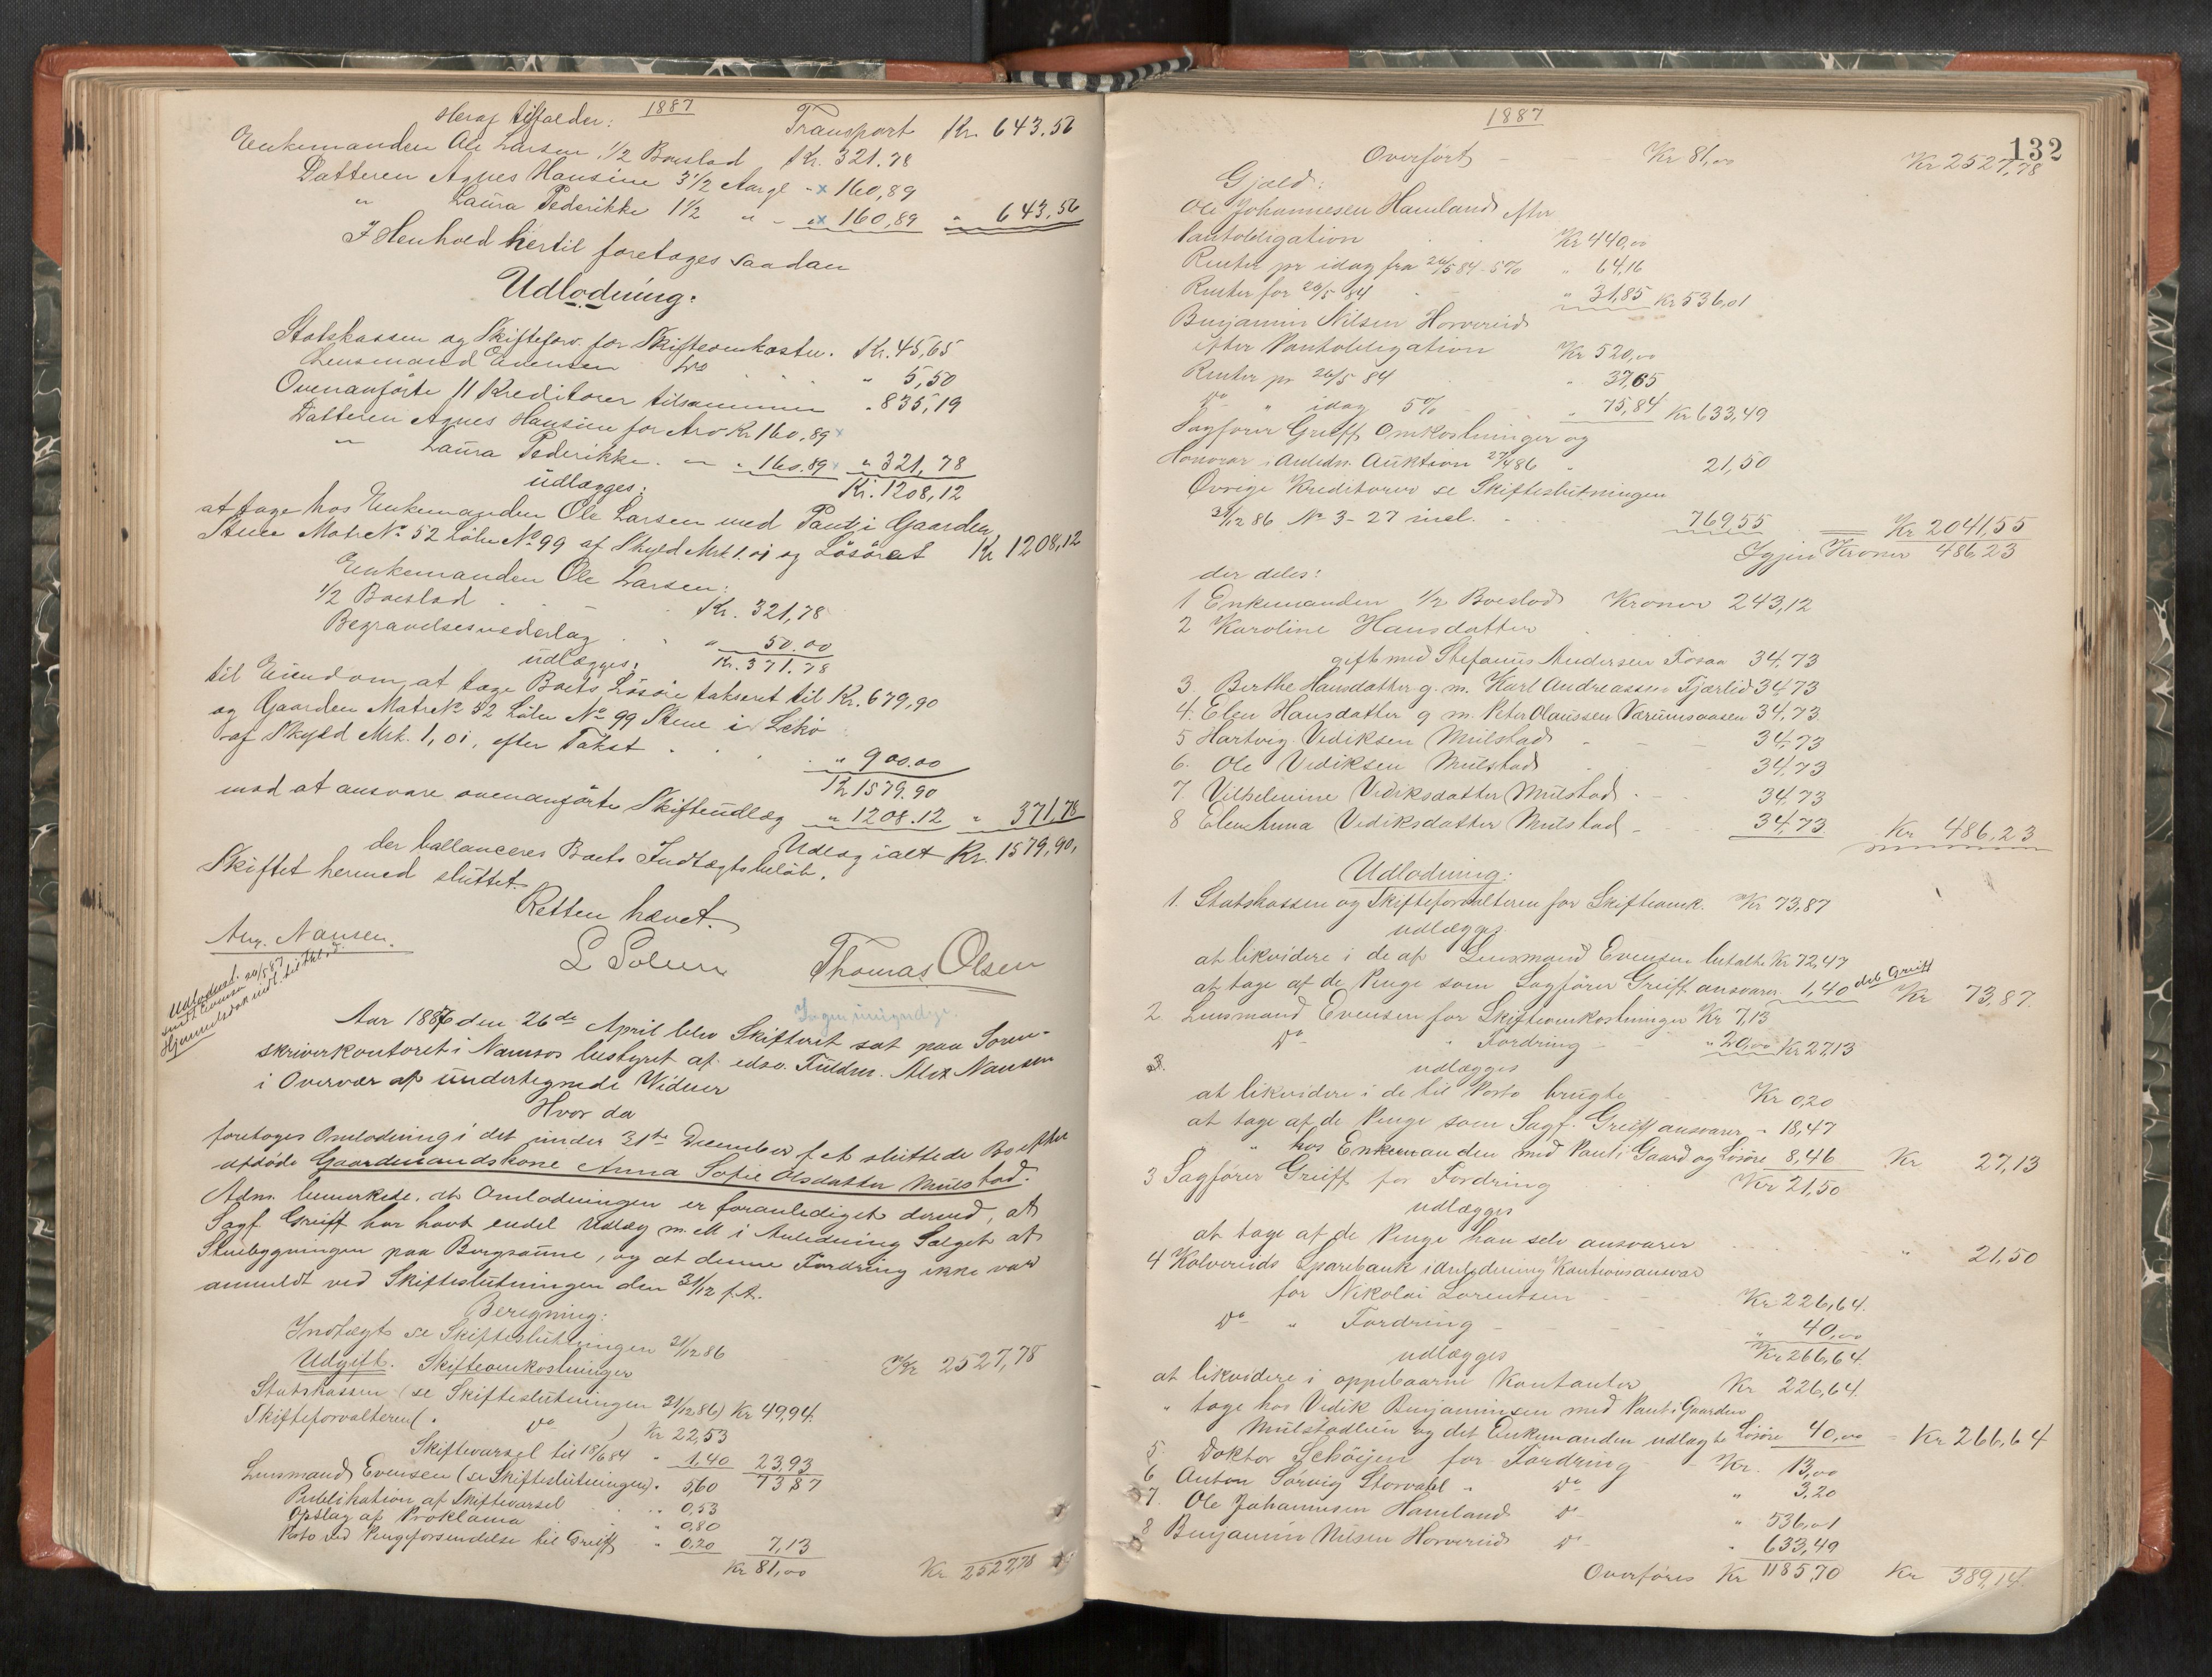 1887
Heraf tilfalder: Transport Kr. 643.56
Enkemanden Ole Larsen 1/2 Boeslod Kr. 321.78
Datteren Agnes Hansine 3 1/2 Aargl - x 160,89
" Laura Pederikke 1 1/2 " - " x 160,89 " 643,56
I Henhold hertil foretages saadan
Udlodning:
Statskassen og Skifteforv. for Skifteomkostn. Kr. 45,65
Lensmand Evensen Do " 5,50
Ovenanførte 11 Kreditorer tilsammen " 835,19
Datteren Agnes Hansine for Arv Kr 160,89 x
" Laura Pederikke " " 160.89 x " 321,78
udlægges: Kr. 1208,12
at tage hos Enkemanden Ole Larsen med Pant i Gaarden
Stene Matr No 52 Løbe No 99 af Skyld Mrk 1.01 og Løsøret Kr 1208,12
Enkemanden Ole Larsen:
1/2 Boeslod Kr. 321,78
Begravelsesvederlag " 50.00
udlægges: Kr. 371.78
til Eiendom, at tage Boets Løsøre takseret til Kr. 679,90
og Gaarden Matr No 52 Løbe No 99 Stene i Lekø
af Skyld Mrk. 1,01, efter Takst " 900.00
Kr 1579.90
mod at ansvare ovenanførte Skifteudlæg " 1208.12 " 371,78
Udlæg ialt Kr. 1579,90,
der ballanceres Boets Indtægtsbeløb.
Skiftet hermed sluttet.
Retten hævet.
Alex. Nansen.
L Solem Thomas Olsen
Aar 1887 den 26de April blev Skifteret sat paa Soren-
skriverkontoret i Namsos bestyret af edsv. Fuldm. Alex Nansen
i Overvær af undertegnede Vidner
Hvor da
foretoges Omlodning i det under 31te December f. A. sluttede Bo efter
afdøde Gaardmandskone Anna Sofie Olsdatter Mulstad.
Adm. bemærkede, at Omlodningen er foranlediget derved, at
Sagf. Greiff har havt endel Udlæg m. M. i Anledning Salget af
Stuebygningen paa Bergsaune, og at denne Fordring ikke var
anmeldt ved Skifteslutningen den 31/12 f. A.
Beregning:
Indtægt se Skifteslutningen 31/12 86 Kr 2527,78
Udgift. Skifteomkostninger
Statskassen (se Skifteslutningen 31/12 86) Kr 49,94.
Skifteforvalteren ( " do ) Kr 22,53
Skiftevarsel til 18/6 84 " 1,40 23,93
73,87
Lensmand Evensen (se Skifteslutningen) " 5,60
Publikation af Skiftevarsel " 0,53
Opslag af Proklama " 0,80
Porto ved Pengeforsendelse til Greiff " 0,20 7,13
Kr 81,00 Kr 2527,78
1887
132
Overført Kr 81,00 Kr 2527,78
Gjæld:
Ole Johannesen Hamland efter
Pantobligation Kr 440,00
Renter pr idag fra 26/5 84 5% " 64,16
Renter for 26/5 84 " 31,85 Kr 536,01
Benjamin Nilsen Horvereid
efter Pantobligation Kr 520,00
Renter pr 26/5 84 " 37,65
Do " idag 5% " 75,84 Kr 633,49
Sagfører Greiff Omkostninger og
Honorar i Anledn. Auktion 27/4 86 " 21,50
Øvrige Kreditorer se Skifteslutningen
31/12 86 No 3-27 incl. 769,55 Kr 2041,55
Igjen Kroner 486,23
der deles:
1 Enkemanden 1/2 Boeslod Kroner 243,12
2 Karoline Hansdatter
gift med Stefanus Andersen Fosaa 34,73
3. Berthe Hansdatter g. m. Karl Andreassen Fjærlid 34,73
4. Elen Hansdatter g m. Peter Olaussen Værumsaasen 34,73
5 Hartvig Vediksen Mulstad 34,73
6. Ole Vediksen Mulstad 34,73
7 Vilhelmine Vediksdatter Mulstad 34,73
8 Elen Anna Vediksdatter Mulstad 34,73. Kr 486,23
Udlodning:
1. Statskassen og Skifteforvalteren for Skifteomk. Kr 73,87
udlægges
at likvidere i de af Lensmand Evensen betalte Kr 72,47
at tage af de Penge som Sagfører Greiff ansvarer 1,40 Kr 73,87.
2 Lensmand Evensen for Skifteomkostninger Kr 7,13
Do " Fordring " 20,00 Kr 27,13
udlægges
at likvidere i de til Porto brugte Kr 0,20
at tage af de Penge som Sagf. Greiff ansvarer - 18,47
" hos Enkemanden med Pant i Gaard og Løsøre 8,46 Kr 27,13
3 Sagfører Greiff for Fordring Kr 21,50
udlægges
at tage af de Penge han selv ansvarer " 21,50
4 Kolvereids Sparebank i Anledning Kautionsansvar
for Nikolai Lorentsen Kr 226,64.
Do " Fordring " 40,00
udlægges Kr 266,64.
at likvidere i oppebaarne Kontanter Kr 226,64.
" tage hos Vedik Benjaminsen med Pant i Gaarden
Mulstadlien og det Enkemanden udlagte Løsøre 40,00 - Kr 266,64
5. Doktor Schöyen for Fordring Kr. 13,00
6 Anton Sørvig Storvahl " Do " 3,20
7. Ole Johannesen Hamland Do " 536,01
8 Benjamin Nilsen Horvereid Do " 633,49
Overføres Kr 1185,70 Kr 389,14.